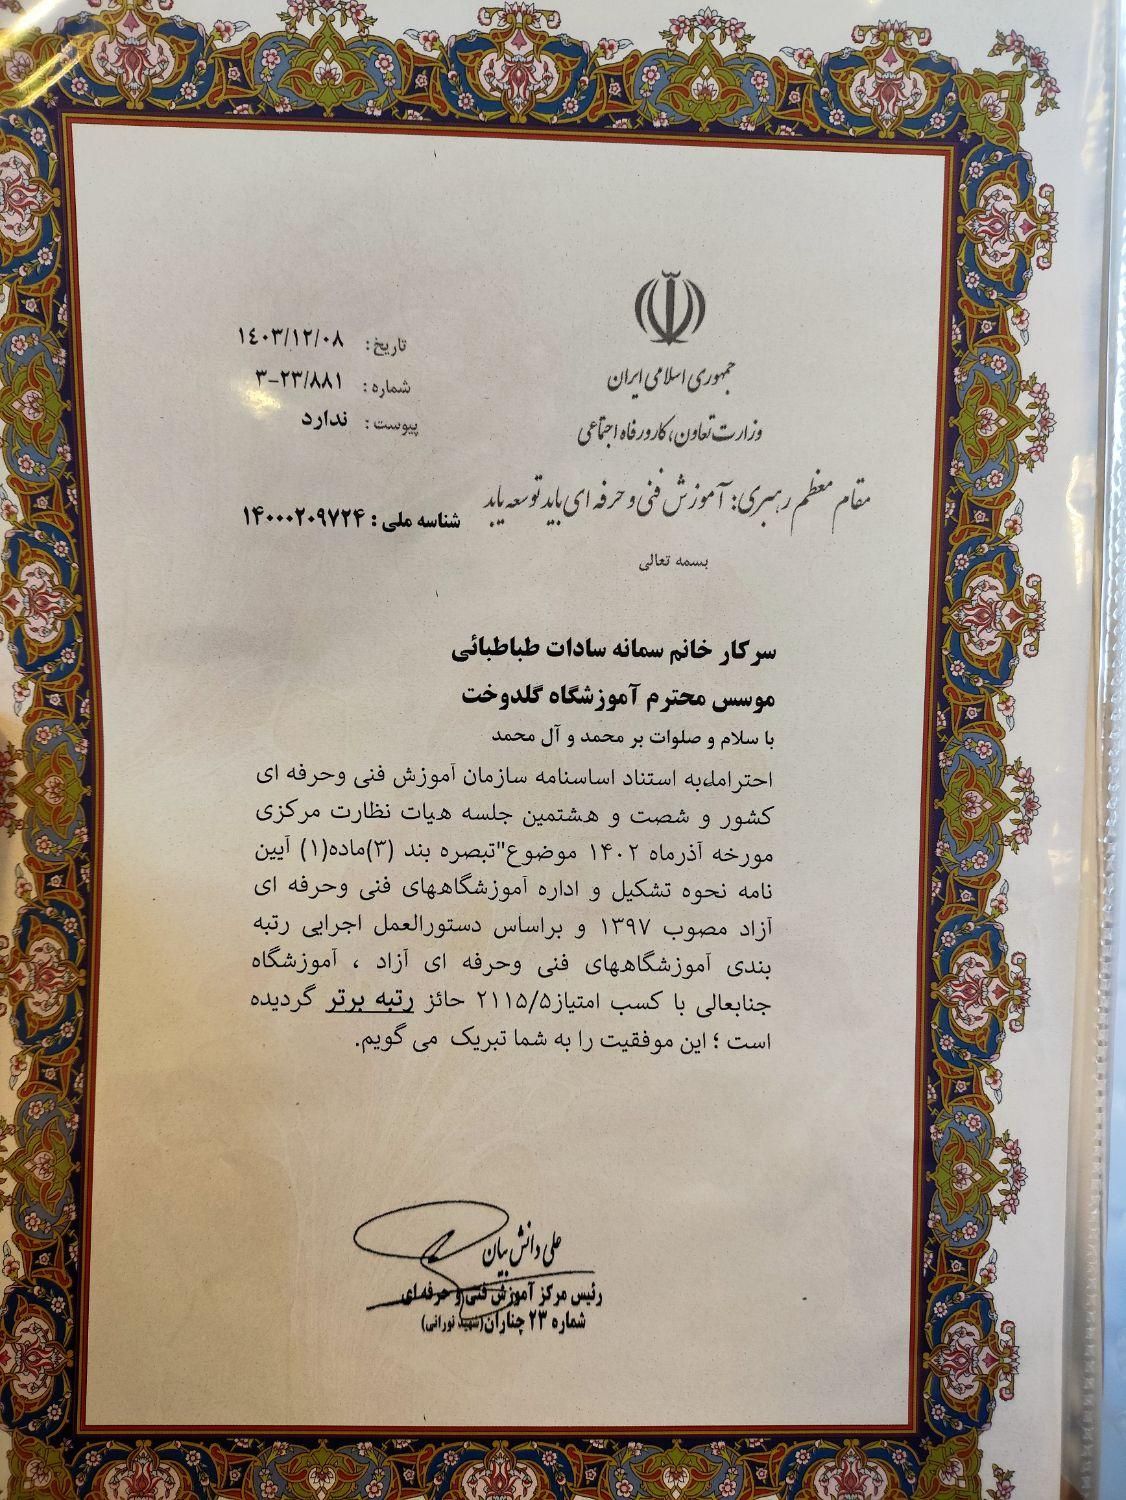 جمهوری اسلامی ایران
وزارت تعاون، کار و رفاه اجتماعی
تاریخ: ۱۴۰۳/۱۲/۰۸
شماره: ۳-۲۳/۸۸۱
پیوست: ندارد
مقام معظم رهبری: آموزش فنی و حرفه ای باید توسعه یابد
شناسه ملی : ۱۴۰۰۰۲۰۹۷۲۴
بسمه تعالی
سرکار خانم سمانه سادات طباطبائی
موسس محترم آموزشگاه گلدوخت
با سلام و صلوات بر محمد و آل محمد
احتراما،به استناد اساسنامه سازمان آموزش فنی وحرفه ای
کشور و شصت و هشتمین جلسه هیات نظارت مرکزی
مورخه آذرماه ۱۴۰۲ موضوع"تبصره بند (۳)ماده(۱) آیین
نامه نحوه تشکیل و اداره آموزشگاههای فنی وحرفه ای
آزاد مصوب ۱۳۹۷ و براساس دستورالعمل اجرایی رتبه
بندی آموزشگاههای فنی وحرفه ای آزاد ، آموزشگاه
جنابعالی با کسب امتیاز۲۱۱۵/۵ حائز رتبه برتر گردیده
است ؛ این موفقیت را به شما تبریک می گویم.
علی دانش بیان
رئیس مرکز آموزش فنی و حرفه ای
شماره ۲۳ چناران(شهید نورانی)